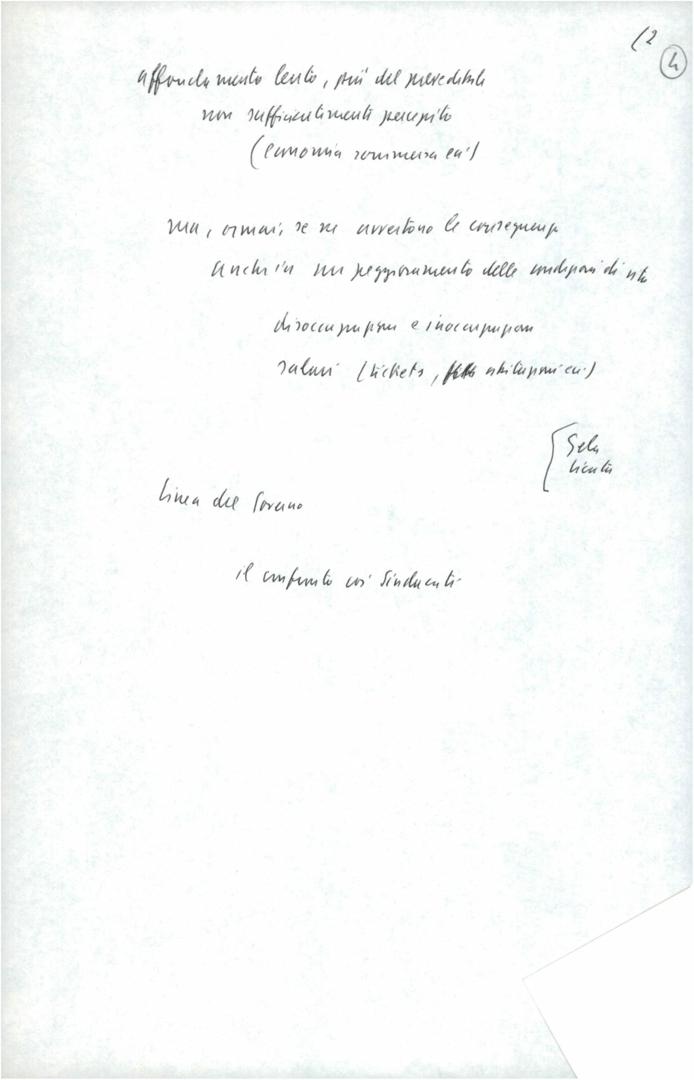 (2
4
affondamento lento, più del prevedibile
non sufficientemente percepito
(economia sommersa ecc)
ma, ormai, se ne avvertono le conseguenze
anche in un peggioramento delle condizioni di vita
disoccupazione e inoccupazione
salari (tickets, abitazioni ecc.)
Gela
Licata
linea del Governo
il confronto coi Sindacati